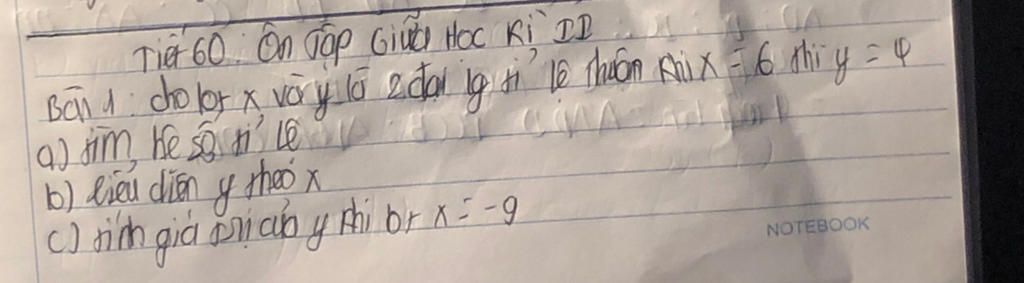 Tiết 60: Ôn Tập Giữa Học Kì II
Bài 1: cho br x và y là 2 đại lg tỉ lệ thuận khi x = 6 thì y = 4
a) tìm hệ số tỉ lệ
b) biểu diễn y theo x
c) tính giá trị của y khi br x = -9
NOTEBOOK